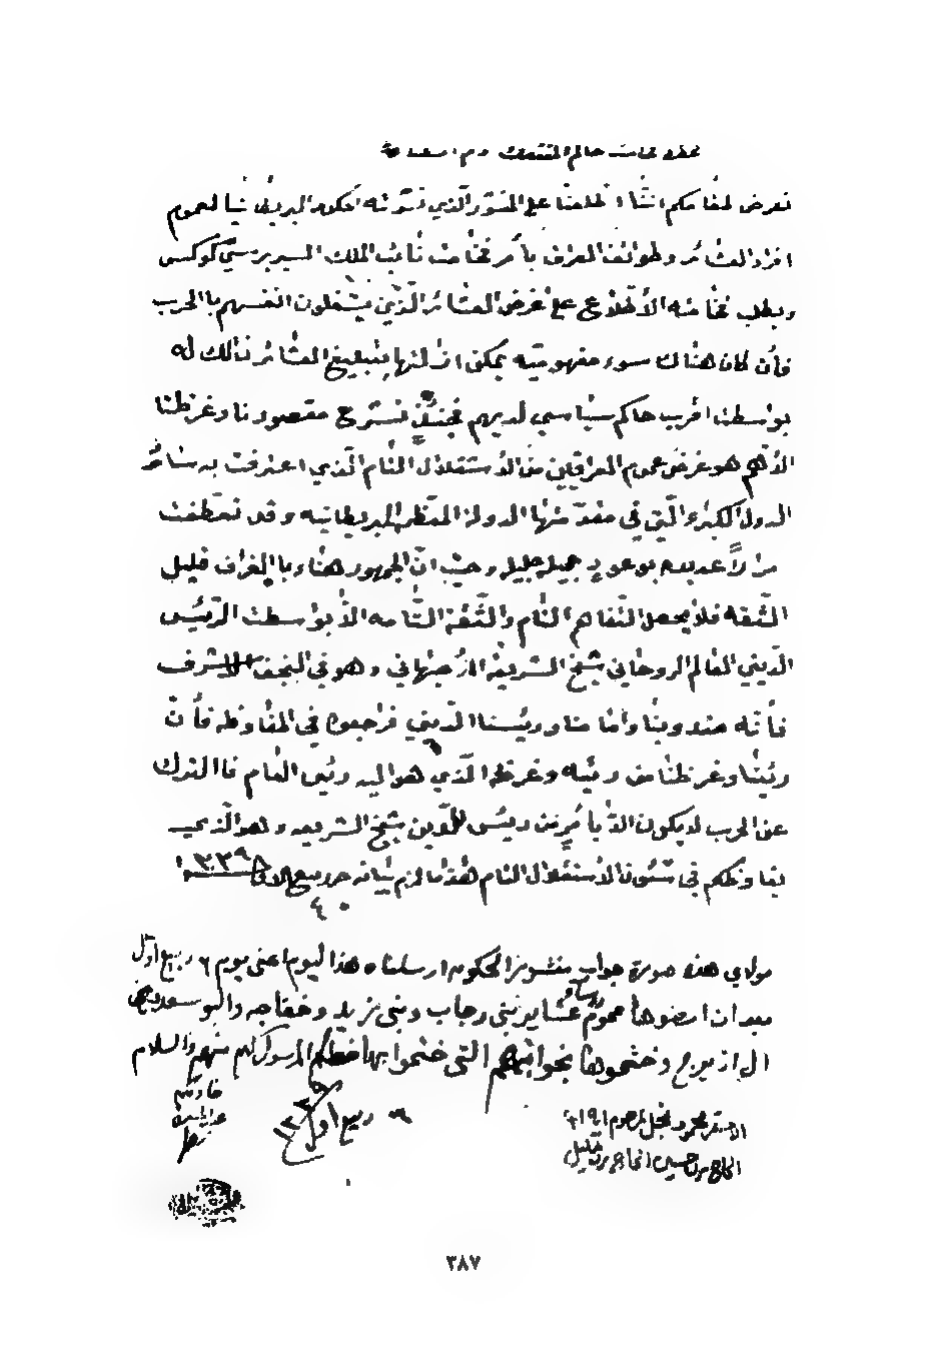 نعرض لمقامكم اننا اطلعنا على المنشور الذي نشرته الحكومه البريطانيا لعموم
افراد العشائر وطوائف العراق بأمر فخامت نائب الملك السير برسي كوكس
ويطلب فخامته الأطلاع على غرض العشائر الذين يشغلون انفسهم با الحرب
فأن كان هناك سوء مفهوميّه يمكن ازالتها بتبليغ العشائر ذالك له
بواسطت اقرب حاكم سياسي لديهم فحينئذٍ نشرح مقصودنا وغرظنا
الأهم هو غرض عموم العراقيين من الأستقلال التام الّذي اعترفت به سائر
الدول الكبرى الّتي في مقدّمتها الدولة المعظمه البريطانيه وقد تعطفت
مراراً عديده بوعودٍ جميله جليله وحيث انّ الجمهور هنا وبا العراق قليل
الثّقه فلا يحصل التّفاهم التام والثّقة التّامه الّا بواسطت الرّئيس
الدّيني العالم الروحاني شيخ الشريعه الأصبهاني وهو في النجف الاشرف
فأنّه مندوبنا وامامنا ورئيسنا الدّيني فراجعوه في المفاوظه فأنّ
رئينا وغرظنا من رئيه وغرظه الّذي هو اليه رئي العام فا الترك
عن الحرب لا يكون الّا بأمرٍ من رئيس الدّين شيخ الشريعه وهو الّذي
يفاوظكم في شئون الأستقلال التام هذا ما لزم بيانه حرر ربيع الاول ١٣٣٩
٤
مولاي هذه صورة جواب منشور الحكومه ارسلناه هذا اليوم اعني يوم ٦ ربيع اول
بعد ان امضوها رؤساء عموم عشاير بني رچاب وبني زريد وخفاجه والبو سعد
ال ازيرج وختموها بخواتيمهم التي ختموا بها المرسول لهم منهم والسلام
خادمكم
٦ ربيع اول ١٣٣٩
٣٨٧